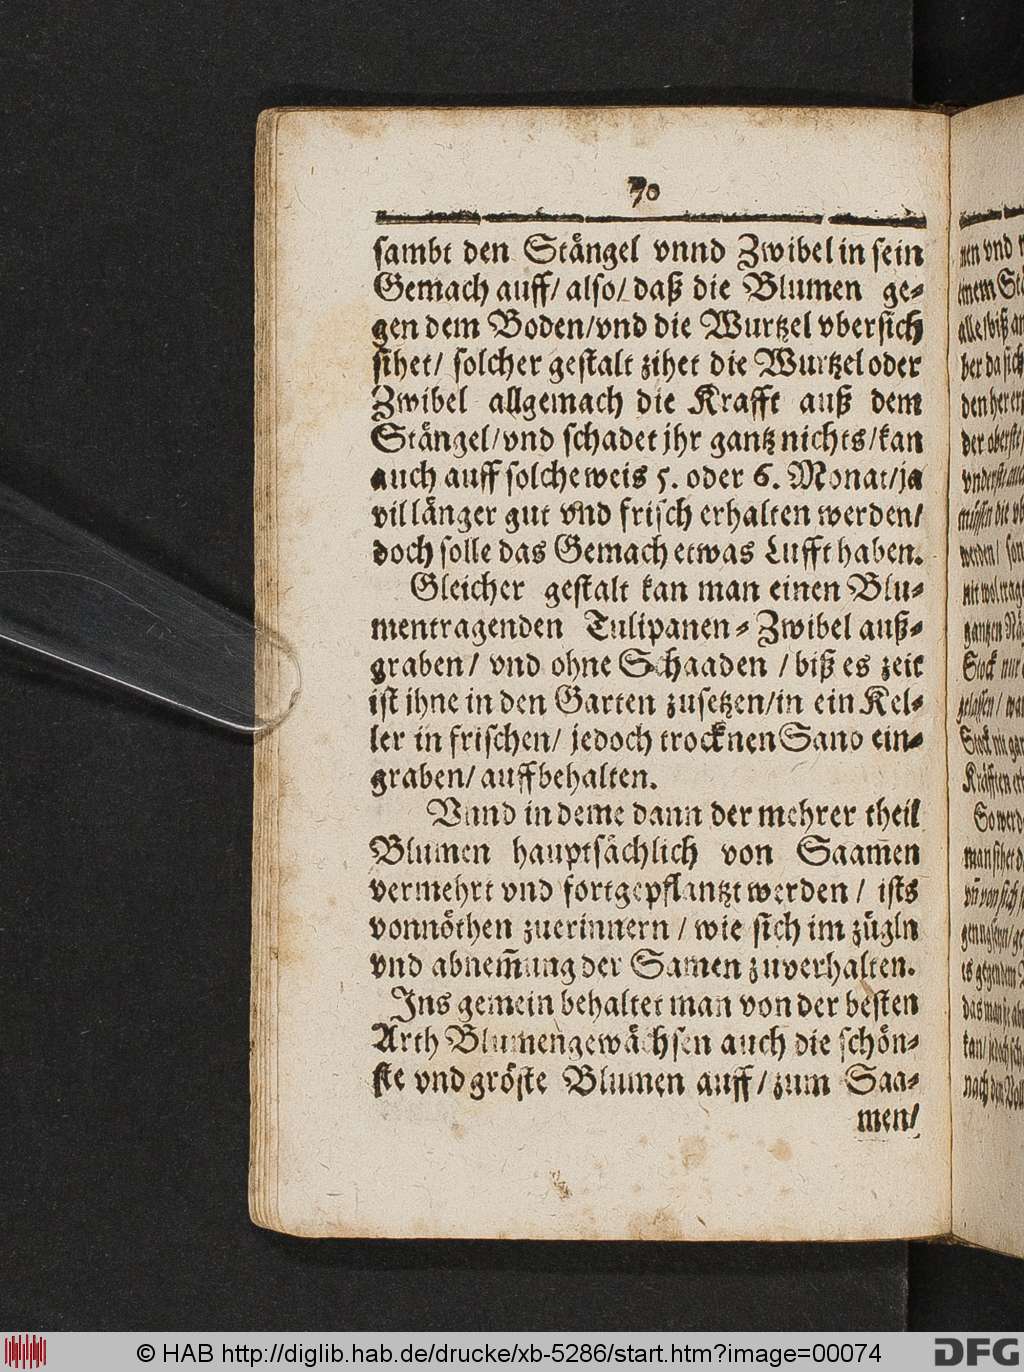 70
sambt den Stängel vnnd Zwibel in sein
Gemach auff/ also/ daß die Blumen ge-
gen dem Boden/vnd die Wurtzel vbersich
sihet/ solcher gestalt zihet die Wurtzel oder
Zwibel allgemach die Krafft auß dem
Stängel/vnd schadet jhr gantz nichts/kan
auch auff solche weis 5. oder 6. Monat/ja
vil länger gut vnd frisch erhalten werden/
doch solle das Gemach etwas Lufft haben.
Gleicher gestalt kan man einen Blu-
mentragenden Tulipanen-Zwibel auß-
graben/ vnd ohne Schaaden /biß es zeit
ist ihne in den Garten zusetzen/in ein Kel-
ler in frischen/ jedoch trocknen Sand ein-
graben/ auffbehalten.
Vnnd in deme dann der mehrer theil
Blumen hauptsächlich von Saam̃en
vermehrt vnd fortgepflantzt werden / ists
vonnöthen zuerinnern / wie sich im zügln
vnd abnem̃ung der Samen zuverhalten.
Ins gemein behaltet man von der besten
Arth Blumengewächsen auch die schön-
ste vnd gröste Blumen auff/zum Saa-
men/
nen vnd
einem
alle/biß
ber da sich
den her
der oberste/
werden/
gantzen
Stock nur
Stock
Kräfften
So werd
man sihet
kan/
nach den
© HAB http://diglib.hab.de/drucke/xb-5286/start.htm?image=00074
DFG